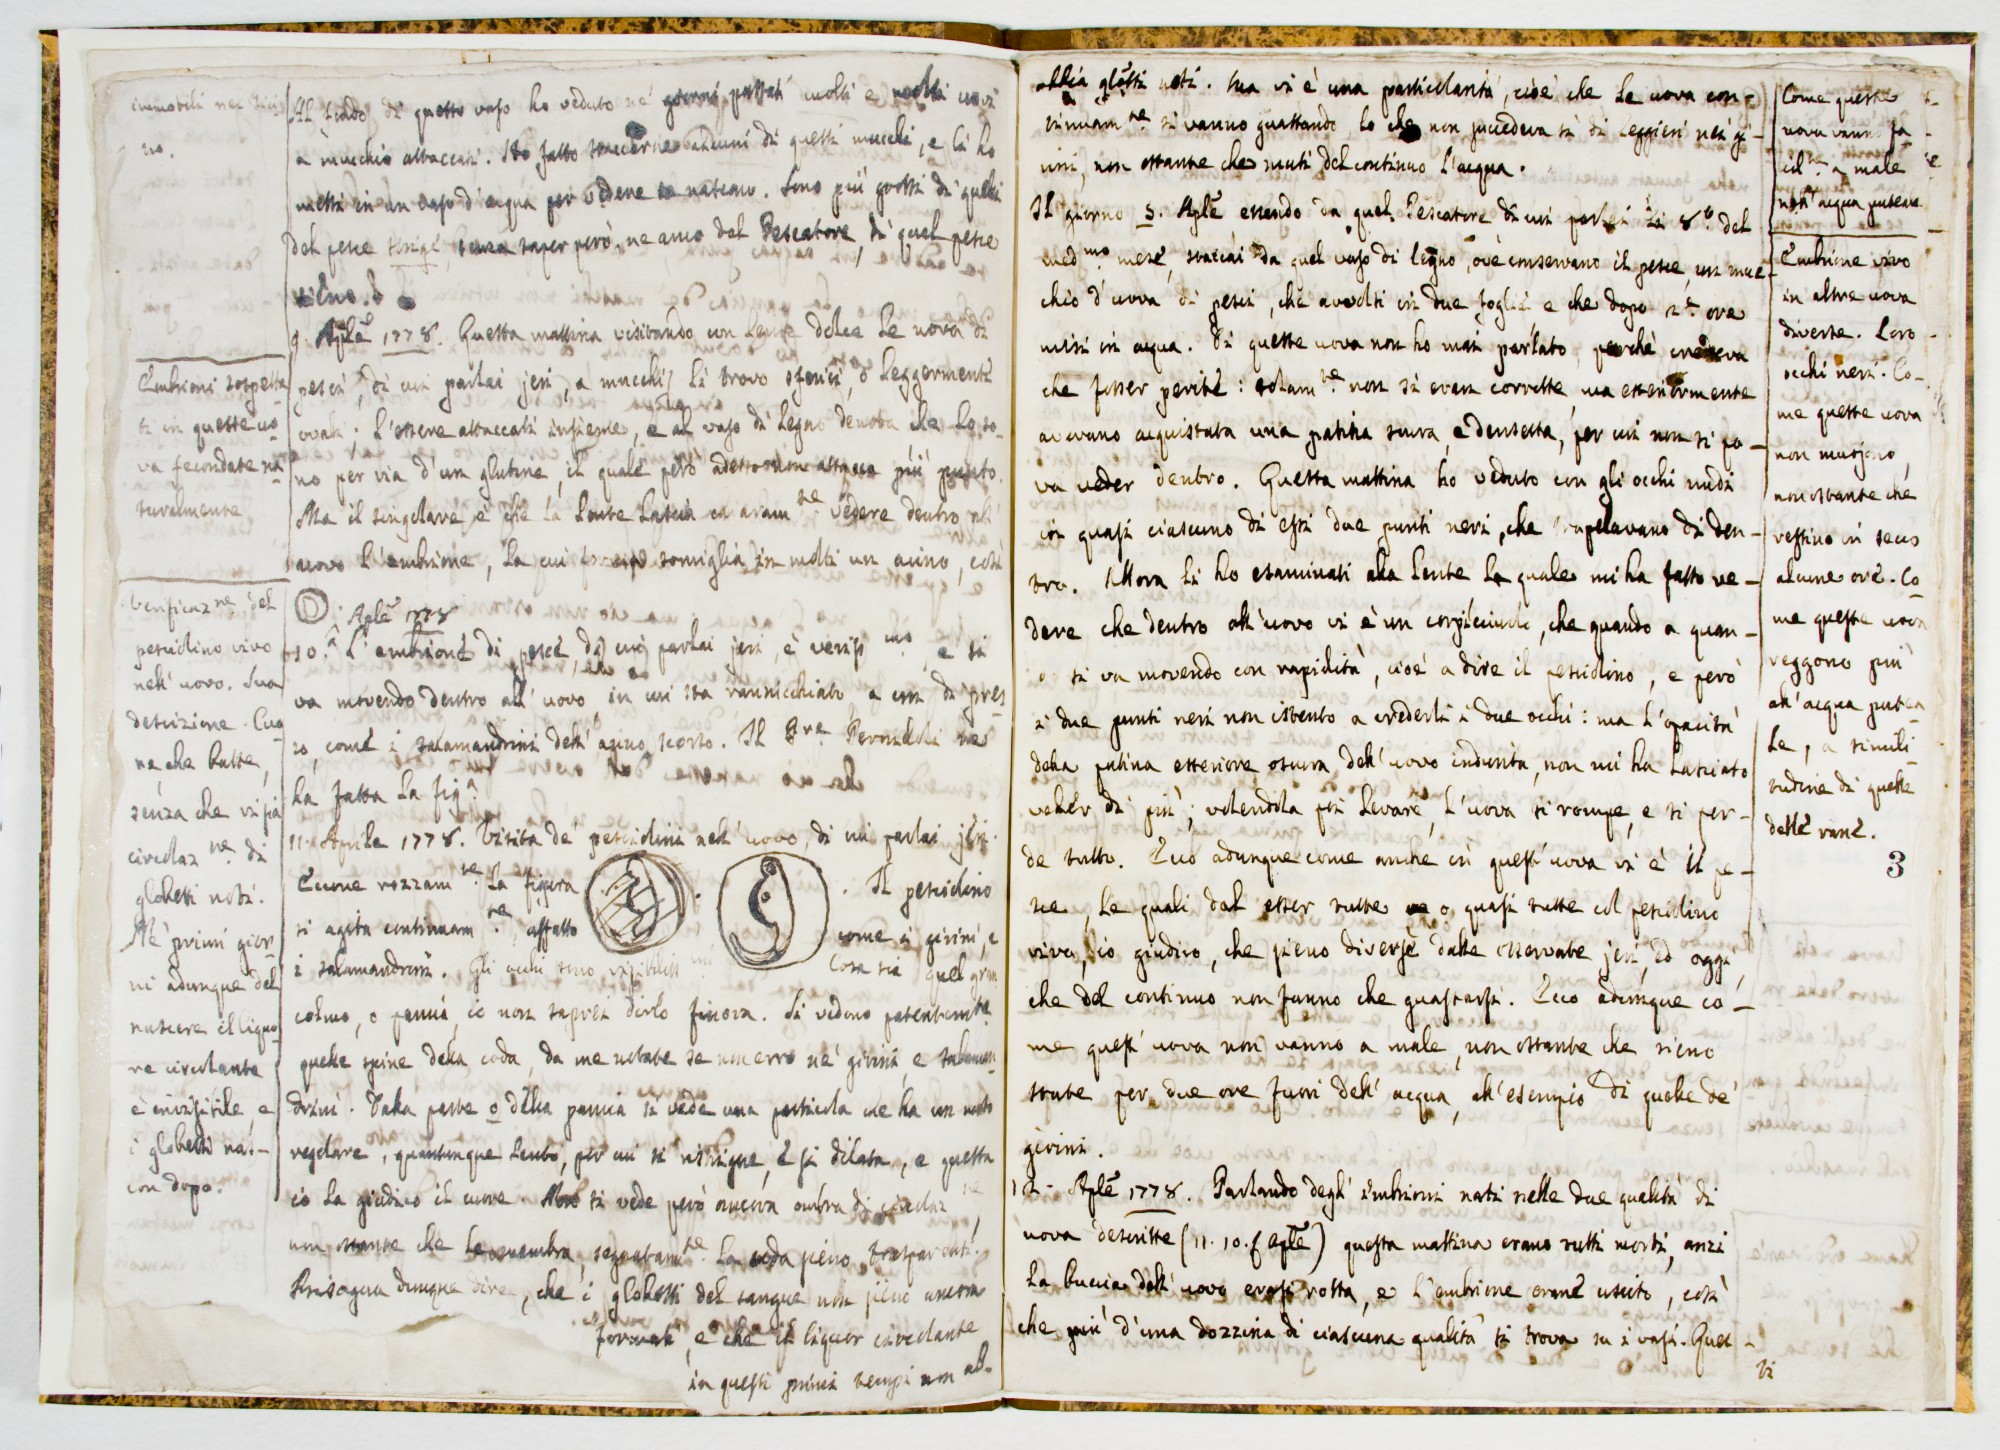 immobili nei
no.
Embrioni sospetta
ti in queste uo
va fecondate na
turalmente
Verificaz.ne del
pesciolino vivo
nell' uovo. Sua
descrizione. Cuo
re che batte,
senza che vi sia
circolaz.ne di
globetti noti.
Ne' primi gior
ni adunque del
nascere il liquo
re circolante
è invisibile, e
i globetti nas-
con dopo.
Al fondo di questo vaso ho veduto ne' giorni passati molti e molti uovi
a mucchio attaccati. Ho fatto staccarne alcuni di questi mucchi, e li ho
messi in un vaso d'acqua per vedere se nascano. Sono più grossi di quelli
del pesce senza saper però, ne anco dal Pescatore, di qual pesce
sieno.
9. Aple 1778. Questa mattina visitando con lente dolce le uova di
pesci, di cui parlai jeri, a mucchi, li trovo sferici, o leggermente
ovali; l'essere attaccati insieme, e al vaso di legno denota che lo so-
no per via d'un glutine, il quale però adesso non attacca più punto.
Ma il singolare è che la lente lascia chiaram.te vedere dentro all'
uovo l'embrione, la cui somiglia in molti un acino, così
Aple 1778
10. L'embrione di pesce di cui parlai jeri, è veriss.mo, e si
va movendo dentro all' uovo, in cui sta rannicchiato, a un di pres
so, come i salamandrini dell' anno scorso. Il
ha fatta la fig.a
11. Aprile 1778. Visita de' pesciolini nell' uovo, di cui parlai jeri.
Eccone rozzam.te la figura . . Il pesciolino
si agita continuam.te affatto come i girini, e
i salamandrini. Gli occhi sono visibiliss.mi Cosa sia quel gran
colmo, o pancia, io non saprei dirlo finora. Si vedono patentem.te
quelle spine della coda, da me notate se non erro ne' girini, e salaman
drini. Dalla parte o della pancia si vede una particola che ha un moto
regolare, quantunque lento, per cui si ristrigne, e si dilata, e questa
io la giudico il cuore. Non si vede però ancora ombra di circolaz.ne,
non ostante che le membra, segnatam.te la coda sieno trasparenti.
Bisogna dunque dire, che i globetti del sangue non sieno ancora
formati, e che il liquor circolante
in questi primi tempi non ab-
abbia globetti noti. Ma vi è una particolarità, cioè che le uova con-
tinuam.te si vanno guastando, lo che non succedeva sì di leggieri nei gi-
rini, non ostante che muti del continuo l'acqua.
Il giorno 5. Aple essendo da quel Pescatore di cui parlai li 8.o del
med.mo mese, staccai da quel vaso di legno, ov'è conservano il pesce, un muc-
chio d'uova di pesci, che avvolti in due foglie e che dopo 2.e ore
misi in acqua. Di queste uova non ho mai parlato, perchè credeva
che fosser perite: solam.te non si eran corrotte, ma esteriormente
avevano acquistata una patina scura, e densetta, per cui non si po-
va veder dentro. Questa mattina ho veduto con gli occhi nudi
in quasi ciascuno di essi due punti neri, che trapelavano di den-
tro. Allora li ho esaminati alla lente la quale mi ha fatto ve-
dere che dentro all' uovo vi è un corpicciuolo, che quando a quan-
o si va movendo con rapidità, cioè a dire il pesciolino, e però
i due punti neri non istento a crederli i due occhi: ma l'opacità
della patina esteriore oscura dell' uovo indurita, non mi ha lasciato
veder di più; volendola poi levare, l'uova si rompe, e si per-
de tutto. Ecco adunque come anche in quest' uova vi è il pe-
sce, le quali dal esser tutte o quasi tutte col pesciolino
vivo, io giudico, che sieno diverse dalle osservate jeri, ed oggi,
che del continuo non fanno che guastarsi. Ecco adunque co-
me quest' uova non vanno a male, non ostante che sieno
state per due ore fuori dell' acqua, all' esempio di quelle de'
girini.
12. Aple 1778. Parlando degli embrioni nati nelle due qualità di
uova descritte (11. 10. Aple) questa mattina erano tutti morti, anzi
la buccia dell' uovo erasi rotta, e l'embrione erane uscito, così
che più d'una dozzina di ciascuna qualità si trova su i vasi. Ques-
ti
Come queste
uova vanno fa
cilm.te a male
nell' acqua putente
Embrione vivo
in altre uova
diverse. Loro
occhi neri. Co-
me queste uova
non muojono,
nonostante che
restino in secco
alcune ore. Co
me queste uova
reggono più
all' acqua puten
te, a simili
tudine di quelle
delle rane.
3